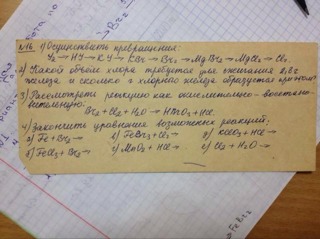 №16. 1) Осуществить превращения:
I₂ → HI → KI → KBr → Br₂ → MgBr₂ → MgCl₂ → Cl₂
2) Какой объем хлора требуется для сжигания 2,8г
железа и сколько г хлорного железа образуется при этом?
3) Рассмотреть реакцию как окислительно-восстано-
вительную:
Br₂ + Cl₂ + H₂O → HBrO₃ + HCl.
4) Закончить уравнения возможных реакций:
а) Fe + Br₂ → в) FeBr₃ + Cl₂ → д) KClO₃ + HCl →
б) FeCl₃ + Br₂ → г) MnO₂ + HCl → е) Cl₂ + H₂O →
Br₂
FeBr